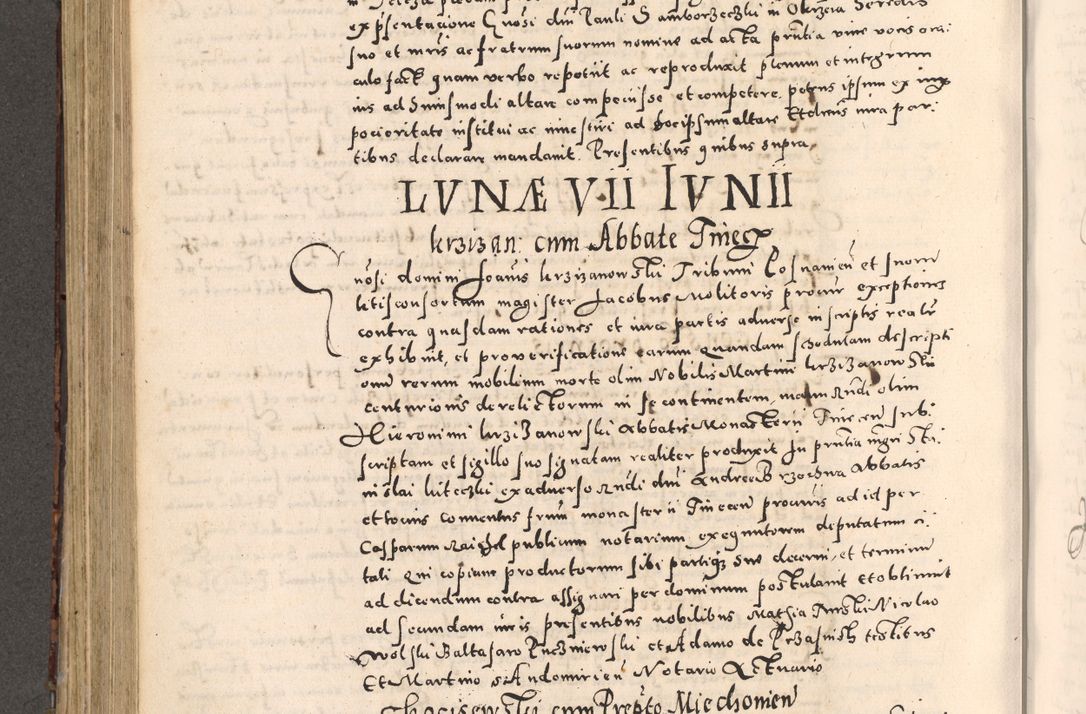 suo et mris ac fratrum suorum nomine ad acta pntia vive vocis ora:
culo fact quam verbo reposuit ac reproduxit plenum et integrum
ius ad huiusmodi altare competiisse et competere petens ipsum ex
pocioritate institui ac investiri ad hocipsum altare iura par:
tibus declarare mandavit. Presentibus quibus supra
LVNÆ VII IVNII
krzizan: cum Abbate Tinecz
nosi domini Joanis krzizanowski Tribuni Posnanien et suorum
litisconsortum magister Jacobus Molitoris procur exceptiones
contra quasdam rationes et iura partis adverse in scriptis realr
exhibuit, et pro verificatione earum quandam schedulam descripti
onis rerum mobilium morte olim Nobilis Martini krzizanowski
centurionis derelictorum in se continentem, manu Rndi olim
Hieronimi krzizanowski Abbatis Monasterii Tinecen sub:
scriptam et sigillo suo signatam realiter produxit In pntia mgri Sta:
nislai kuteczki ex adverso Rndi dni Andreae Brzechwa Abbatis
et tocius conventus frum monasterii Tinecen procuris ad id per
Casparum publicum notarium exequutorem deputatum ci:
tati Qui copiam productorum sibi partique sue decerni, et terminum
ad dicendum contra assignari per dominum postulavit et obtinuit
ad secundam iuris presentibus nobilibus Mathia Nicolao
Wolski Baltasaro et Adamo de testibus
Et Martino Sandomirien Notario Actuario
cum Prepto Miechovien